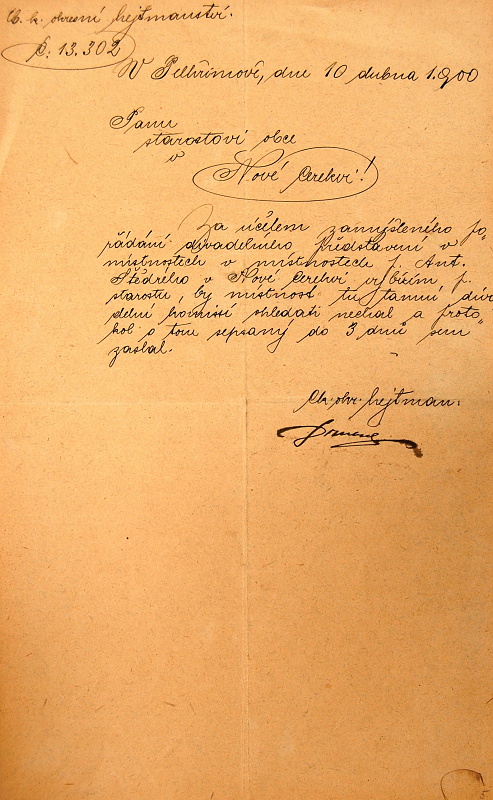 C. k. okresní hejtmanství.
č: 13.302
V Pelhřimově, dne 10 dubna 1900
Panu
starostovi obce
v
Nové Cerekvi!
Za účelem zamýšleného po„
řádání divadelního představení v
místnostech v místnostech p. Ant.
Štědrého v Nové Cerekvi vybízím p.
starostu, by místnost tu tamní, div
delní komisí ohledati nechal a proto„
kol o tom sepsaný do 3 dnů sem
zaslal.
Ck. okr. hejtman: